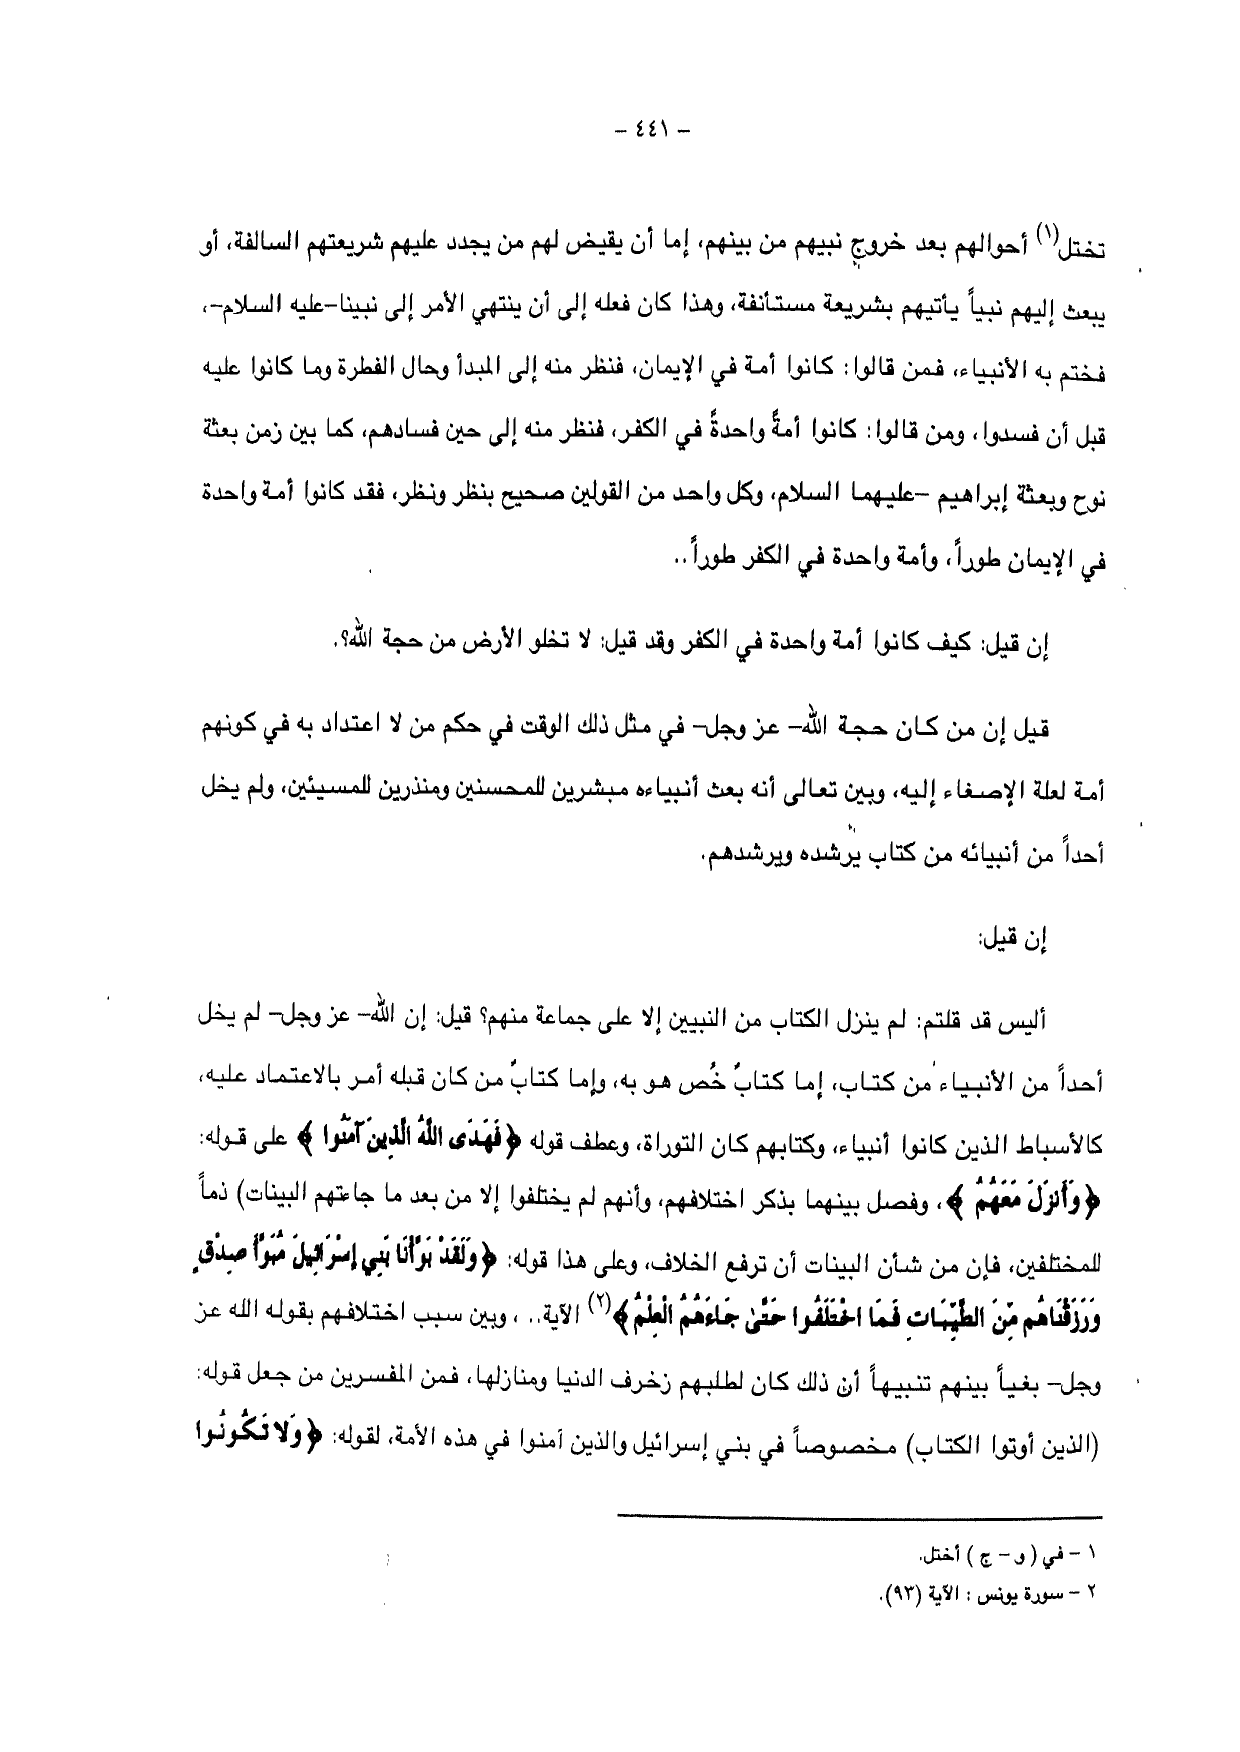 - ٤٤١ -
تختل(١) أحوالهم بعد خروج نبيهم من بينهم، إما أن يقيض لهم من يجدد عليهم شريعتهم السالفة، أو
يبعث إليهم نبياً يأتيهم بشريعة مستأنفة، وهذا كان فعله إلى أن ينتهي الأمر إلى نبينا-عليه السلام-،
فختم به الأنبياء، فمن قالوا: كانوا أمة في الإيمان، فنظر منه إلى المبدأ وحال الفطرة وما كانوا عليه
قبل أن فسدوا، ومن قالوا: كانوا أمةً واحدةً في الكفر، فنظر منه إلى حين فسادهم، كما بين زمن بعثة
نوح وبعثة إبراهيم -عليهما السلام، وكل واحد من القولين صحيح بنظر ونظر، فقد كانوا أمة واحدة
في الإيمان طوراً، وأمة واحدة في الكفر طوراً..
إن قيل: كيف كانوا أمة واحدة في الكفر وقد قيل: لا تخلو الأرض من حجة الله؟.
قيل إن من كان حجة الله- عز وجل- في مثل ذلك الوقت في حكم من لا اعتداد به في كونهم
أمة لعلة الإصغاء إليه، وبين تعالى أنه بعث أنبياءه مبشرين للمحسنين ومنذرين للمسيئين، ولم يخل
أحداً من أنبيائه من كتاب يرشده ويرشدهم.
إن قيل:
أليس قد قلتم: لم ينزل الكتاب من النبيين إلا على جماعة منهم؟ قيل: إن الله- عز وجل- لم يخل
أحداً من الأنبياء من كتاب، إما كتابٌ خُص هو به، وإما كتابٌ من كان قبله أمر بالاعتماد عليه،
كالأسباط الذين كانوا أنبياء، وكتابهم كان التوراة، وعطف قوله ﴿فَهَدَى اللَّهُ الَّذِينَ آمَنُوا ﴾ على قوله:
﴿وَأَنزَلَ مَعَهُمُ ﴾، وفصل بينهما بذكر اختلافهم، وأنهم لم يختلفوا إلا من بعد ما جاءتهم البينات) ذماً
للمختلفين، فإن من شأن البينات أن ترفع الخلاف، وعلى هذا قوله: ﴿وَلَقَدْ بَوَّأْنَا بَنِي إِسْرَائِيلَ مُبَوَّأَ صِدْقٍ
وَرَزَقْنَاهُم مِّنَ الطَّيِّبَاتِ فَمَا اخْتَلَفُوا حَتَّىٰ جَاءَهُمُ الْعِلْمُ﴾(٢) الآية.. ، وبين سبب اختلافهم بقوله الله عز
وجل- بغياً بينهم تنبيهاً أن ذلك كان لطلبهم زخرف الدنيا ومنازلها، فمن المفسرين من جعل قوله:
(الذين أوتوا الكتاب) مخصوصاً في بني إسرائيل والذين آمنوا في هذه الأمة، لقوله: ﴿وَلَا تَكُونُوا
١ - في ( و - ج ) أختل.
٢ - سورة يونس : الآية (٩٣).